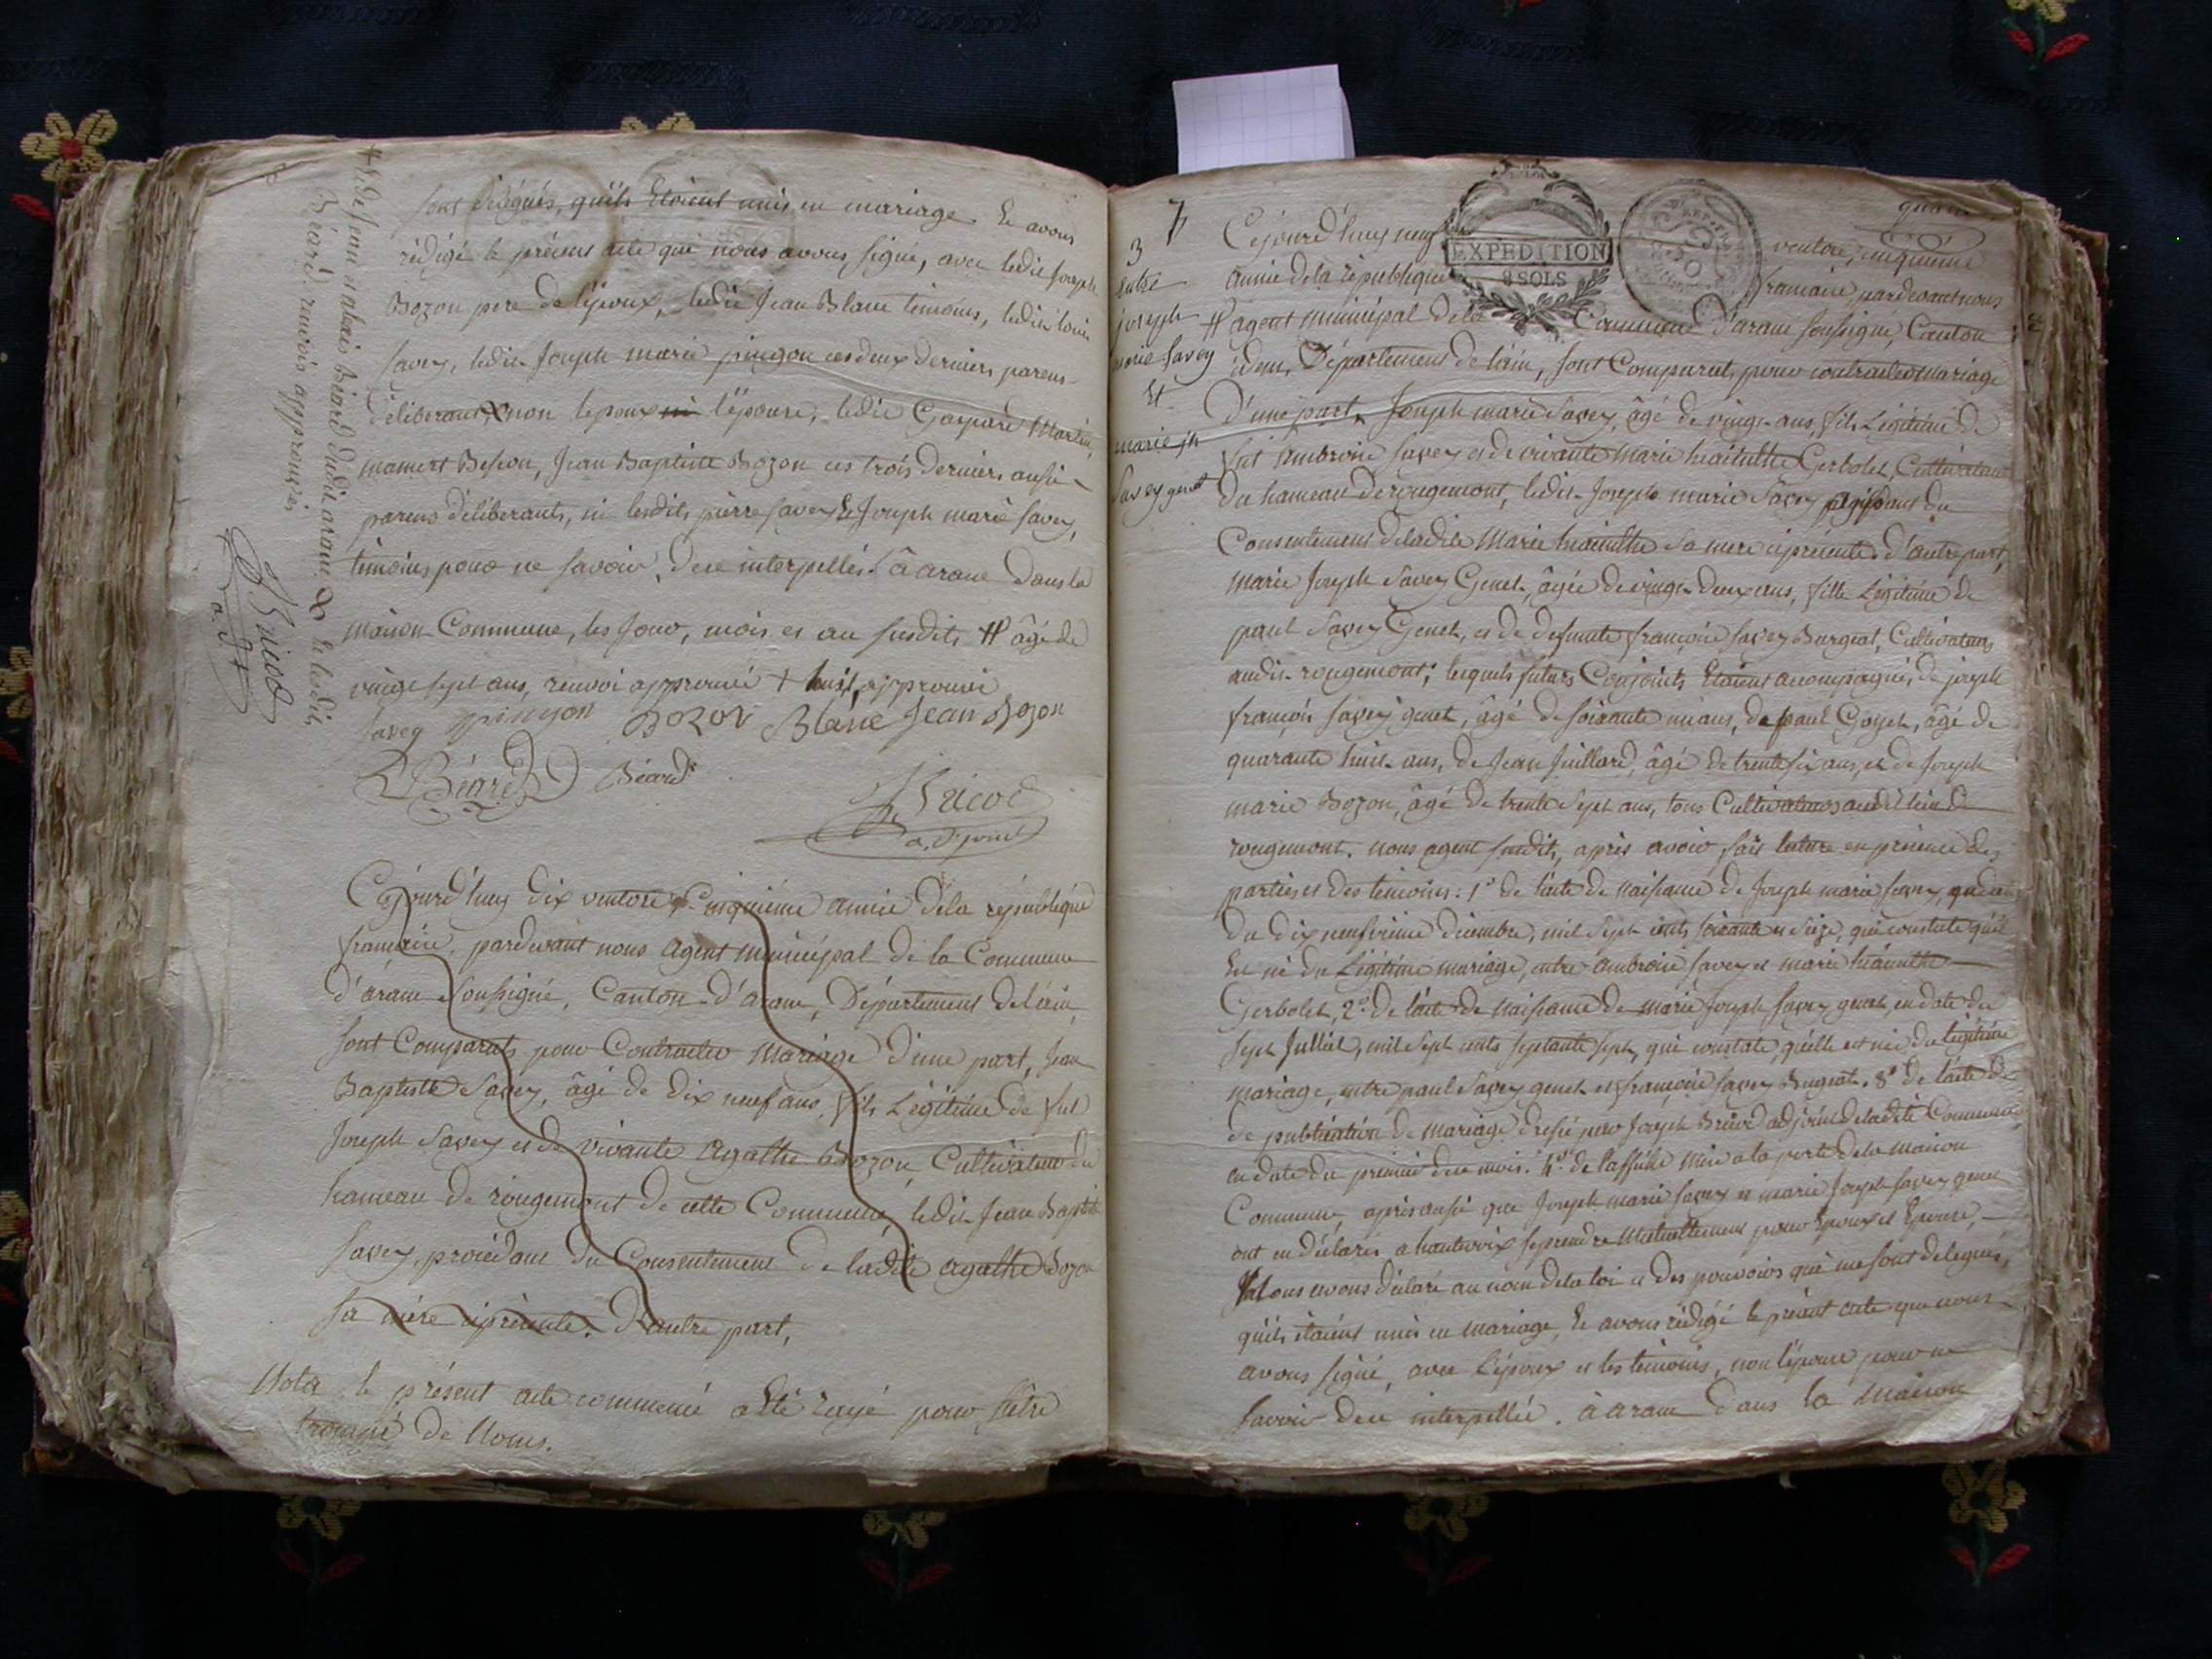 sont délégués, qu'ils Etoient unis en mariage. Et avons
rédigé le présent acte que nous avons signé, avec ledit joseph
Bozon pere de l'epoux, ledit Jean Blanc temoins, ledit louis
Savey, ledit Joseph marie pingon ces deux derniers parens
déliberant, non lepoux ni l'épouse, ledit Gaspard Martin,
mamert Besson, Jean Baptiste Bozon ces trois derniers aussi
parens déliberants, ni lesdits pierre savey & Joseph marie savey,
témoins pour ne savoir, dece interpellés. à arane dans la
maison Commune, les Jour, mois et an susdits # âgé de
vingt sept ans, renvoi approuvé + huit approuvé
savey pingon Bozon Blanc Jean Bozon
Béard Béard
J Bricod
adjoint
# de Jean
Béard. renvois approuvés
J Bricod
Cejourd'huy dix ventose, Cinquième année de la république
française, pardevant nous agent municipal de la Commune
d'arane soussigné, Canton d'arane, Département de lain,
sont Comparuts pour Contracter Mariage d'une part, Jean
Baptiste Savey, âgé de dix neuf ans, fils Légitime de fut
Joseph Savey et de vivante Agathe Bozon, Cultivateur du
hameau de rougemont de cette Commune, ledit Jean Baptiste
Savey, procédant du Consentement de ladite agathe Bozon
sa mère cy présente. D'autre part,
Nota le présent acte commencé a Eté rayé pour s'être
trompé de Noms.
7
3
Entre
joseph
marie Savey
Et
marie jh
Savey genet
EXPEDITION
8 SOLS
Cejourd'huy neuf ventose, cinquième
année de la république francaise, pardevant nous
# agent municipal de la Commune d'arane soussigné, Canton
idem, Département de lain, sont Comparuts pour contracter mariage
D'une part, Joseph marie Savey, âgé de vingt ans, fils Légitime de
fut Ambroise Savey et de vivante Marie hiacinthe Gerbolet, Cultivateur
du hameau de rougemont, ledit Joseph marie Savey agissant du
Consentement de ladite Marie hiacinthe sa mere cy présente. D'autre part,
marie Joseph Savey Genet, âgée de vingt deux ans, fille Légitime de
paul Savey Genet, et de defunte françoise Savey Burgeat, Cultivateurs
audit rougemont; lesquels futurs Conjoints Etoient accompagnés, de joseph
françois savey genet, âgé de soixante un ans, de paul Goyet, âgé de
quarante huit ans, de Jean Juillard, âgé de trente six ans, et de Joseph
marie Bozon, âgé de trente sept ans, tous Cultivateurs audit lieu de
rougemont. Nous agent susdit, après avoir fait lecture en présence des
parties et des témoins: 1° de l'acte de Naissance de Joseph marie savey,
du dix neufvieme décembre, mil sept cents soixante et seize, qui constate qu'il
Est né du Légitime mariage, entre ambroise savey et marie hiacinthe
Gerbolet, 2° de l'acte de Naissance de marie Joseph savey genet, en date du
sept Juillet, mil sept cents septante sept, qui constate, qu'elle est née du legitime
mariage, entre paul Savey genet et françoise savey Burgeat. 3° de l'acte de
de publication de mariage dressé par Joseph Bricod adjoint de ladite Commune
en date du premier du mois. 4° de l'affiche mise a la porte de la maison
Commune, après aussi que Joseph marie savey et marie Joseph savey genet
ont eu déclaré a haute voix se prendre Mutuellement pour Epoux et Epouse,
Nous avons déclaré au nom de la loi et des pouvoirs qui me sont delegués,
qu'ils étoient unis en mariage, Et avons rédigé le présent acte que nous
avons signé, avec l'époux et les témoins, non l'épouse pour ne
savoir dece interpellée. à arane dans la maison